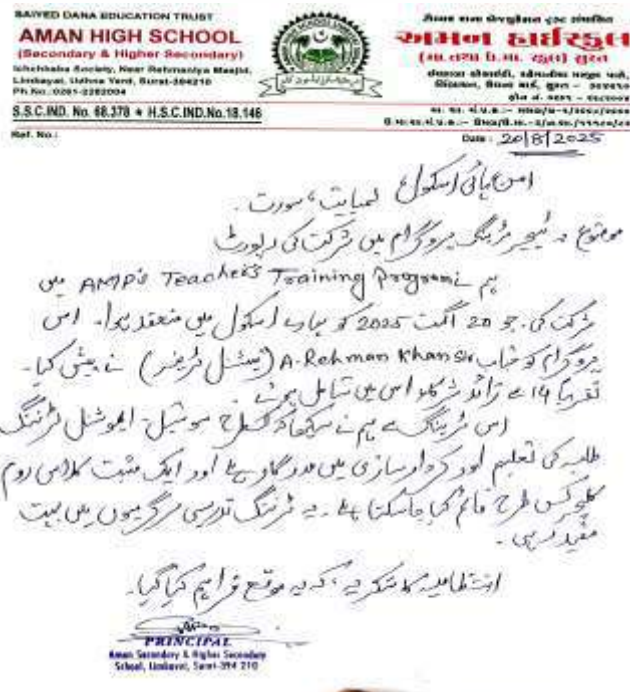 SAIYED DANA EDUCATION TRUST
AMAN HIGH SCHOOL
(Secondary & Higher Secondary)
Ichchhaba Society, Near Rehmaniya Masjid,
Limbayat, Udhna Yard, Surat-394210
Ph.No.:0261-2282004
S.S.C.IND. No. 68.378 ★ H.S.C.IND.No.18.146
અમાન હાઈસ્કૂલ
Ref. No.:
Date : 20/8/2025
امن ہائی اسکول لمبایت، سورت۔
موضوع : ٹیچر ٹریننگ پروگرام میں شرکت کی رپورٹ
ہم AMP's Teachers Training Program میں
شرکت کی۔ جو 20 اگست 2025 کو ہمارے اسکول میں منعقد ہوا۔ اس
پروگرام کو جناب A.Rehman Khan Sir (نیشنل ٹرینر) نے پیش کیا۔
تقریباً 14 سے زائد شرکاء اس میں شامل ہوئے۔
اس ٹریننگ سے ہم نے سیکھا کہ کس طرح سوشیل۔ ایموشنل لرننگ
طلبہ کی تعلیم اور کردار سازی میں مددگار ہے اور ایک مثبت کلاس روم
کلچر کس طرح قائم کیا جاسکتا ہے۔ یہ ٹریننگ تدریسی سرگرمیوں میں بہت
مفید رہی۔
انتظامیہ کا شکریہ، کہ یہ موقع فراہم کیا گیا۔
PRINCIPAL
Aman Secondary & Higher Secondary
School, Limbayat, Surat-394 210